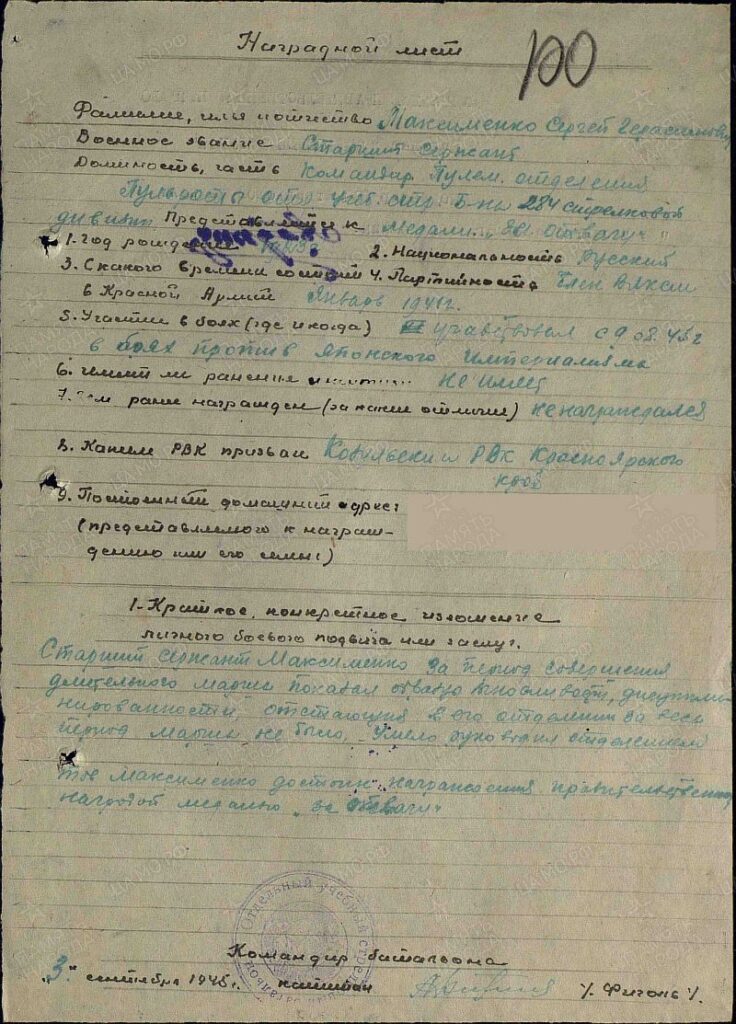 Наградной лист
100
Фамилие, имя и отчество Максименко Сергей Герасимович
Военное звание Старший сержант
Должность, часть Командир Пулем. отделения
Пульроты отд. учеб. стр. Б-на 284 стрелковой
дивизии Представляется к медали "За отвагу"
1. Год рождения 2. Национальность Русский
3. С какого времени состоит 4. Партийность Член ВЛКСМ
в Красной Армии Январь
5. Участие в боях (где и когда) участвовал с 9.08.45 г
в боях против Японского империализма
6. Имеет ли ранения не имеет
7. Чем ранее награжден (за какие отличия) не награждался
8. Каким РВК призван РВК Красноярского
край
9. Постоянный домашний адрес:
(представляемого к награж-
дению или его семьи)
1. Краткое, конкретное изложение
личного боевого подвига или заслуг.
Старший сержант Максименко за период совершения
длительного марша показал отвагу выносливость, дисципли-
нированность, отстающих в его отделении за весь
период марша не было, умело руководил отделением
тов Максименко достоин награждения правительственно
наградой медалью "за отвагу"
Отдельный учебный стрелковый
Командир батальона
"3" сентября 1945 г. капитан /. Фиголь /.